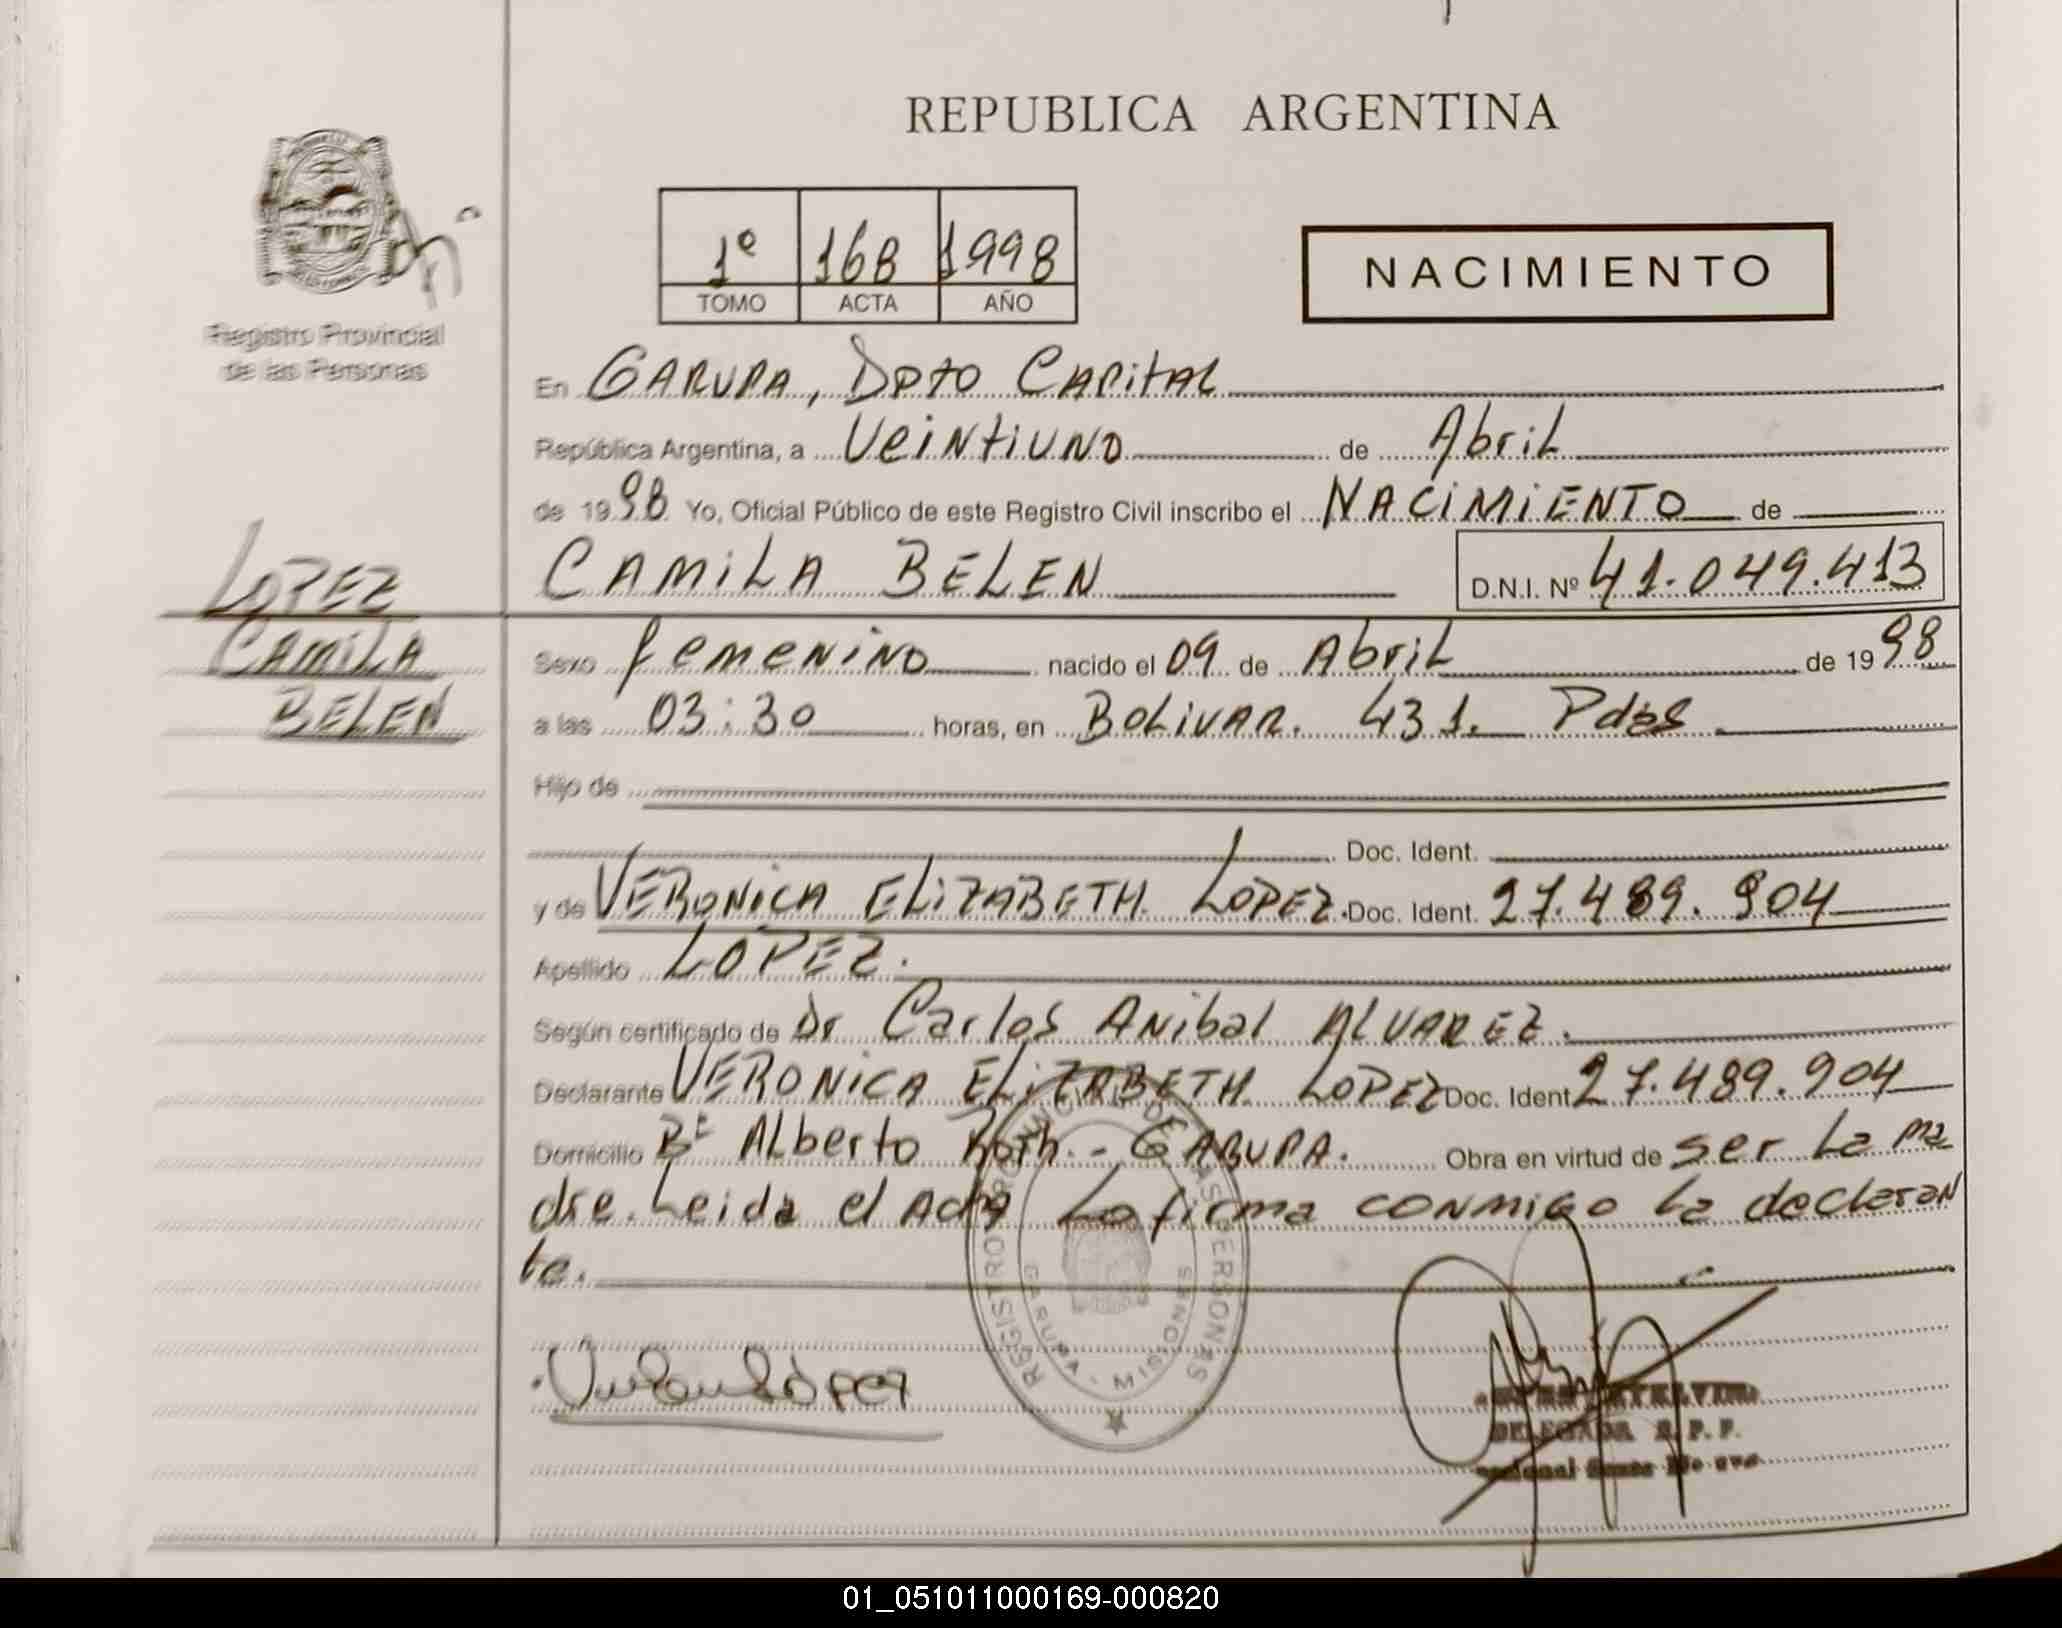 REPUBLICA ARGENTINA
1º 168 1998
TOMO ACTA AÑO
NACIMIENTO
Registro Provincial
de las Personas
En GARUPA, Dpto CAPitAL
República Argentina, a Veintiuno de Abril
de 1998 Yo, Oficial Público de este Registro Civil inscribo el NACIMIENTO de
CAMILA BELEN D.N.I. Nº 41.049.413
LOPEZ
CAMILA
BELEN
Sexo femenino nacido el 09 de Abril de 1998
a las 03:30 horas, en BOLIVAR. 431. Pdas
Hijo de
Doc. Ident.
y de VERONICA ELIZABETH LOPEZ. Doc. Ident. 27.489.904
Apellido LOPEZ.
Según certificado de Dr Carlos Anibal ALVAREZ.
Declarante VERONICA ELIZABETH LOPEZ Doc. Ident. 27.489.904
Domicilio Bº Alberto Roth - GARUPA. Obra en virtud de ser La ma
dre. Leida el Acta La firma conmigo la declaran
te.
REGISTRO PROVINCIAL DE LAS PERSONAS
GARUPA - MISIONES
López
DELEGADA R. P. P.
01_051011000169-000820